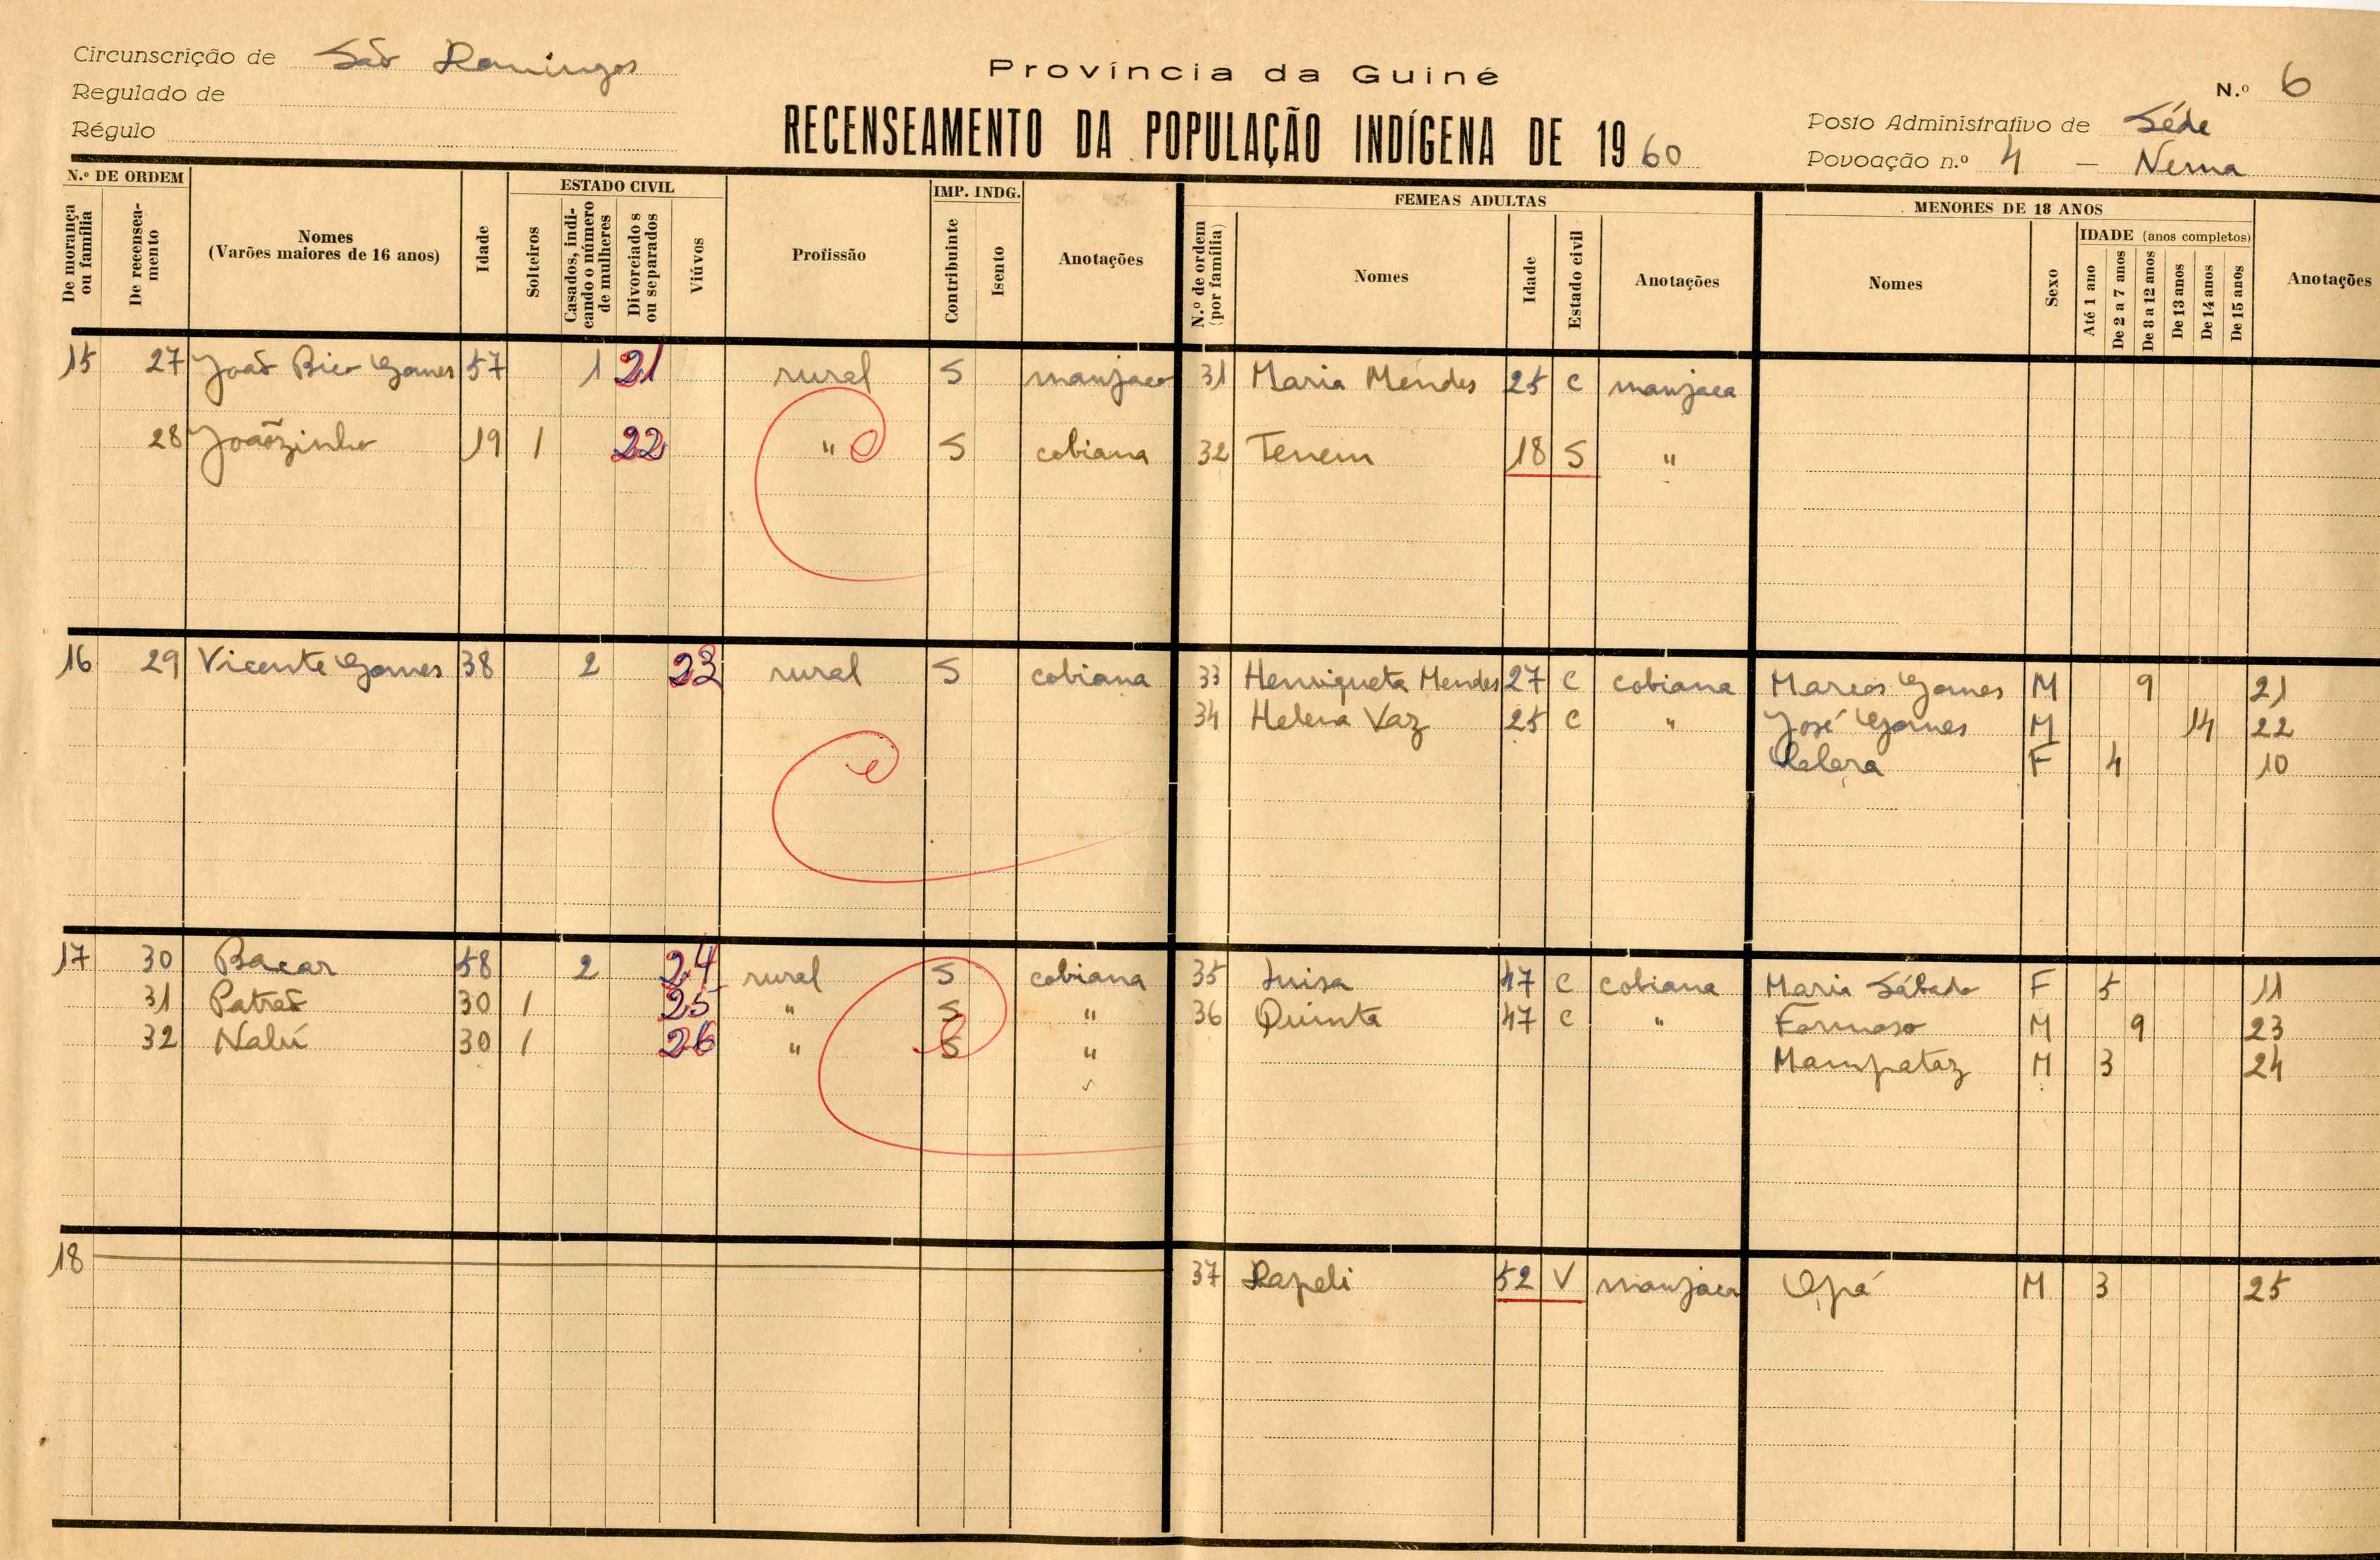 Circunscrição de São Domingos
Regulado de
Régulo
Província da Guiné
RECENSEAMENTO DA POPULAÇÃO INDÍGENA DE 1960
N.º 6
Posto Administrativo de Séde
Povoação n.º 4 — Nema
N.º DE ORDEM
De morança ou família
De recenseamento
Nomes
(Varões maiores de 16 anos)
Idade
ESTADO CIVIL
Solteiros
Casados, indicando o número de mulheres
Divorciados ou separados
Viúvos
Profissão
IMP. INDG.
Contribuinte
Isento
Anotações
FEMEAS ADULTAS
N.º de ordem (por família)
Nomes
Idade
Estado civil
Anotações
MENORES DE 18 ANOS
Nomes
Sexo
IDADE (anos completos)
Até 1 ano
De 2 a 7 anos
De 8 a 12 anos
De 13 anos
De 14 anos
De 15 anos
Anotações
15 27 João Bico Gomes 57 1 21 rural S manjaco 31 Maria Mendes 25 C manjaca
28 Joãozinho 19 1 22 " S cobiana 32 Tenem 18 S "
16 29 Vicente Gomes 38 2 23 rural S cobiana 33 Henriqueta Mendes 27 C cobiana Marcos Gomes M 9 21
34 Helena Vaz 25 C " José Gomes M 14 22
F 4 10
17 30 Bacar 58 2 24 rural S cobiana 35 Luisa 47 C cobiana Maria Sábado F 5 11
31 Patrão 30 1 25 " S " 36 Quinta 47 C " Formoso M 9 23
32 Nalú 30 1 26 " S " Mampataz M 3 24
18 37 Rapeli 52 V manjaca Opá M 3 25